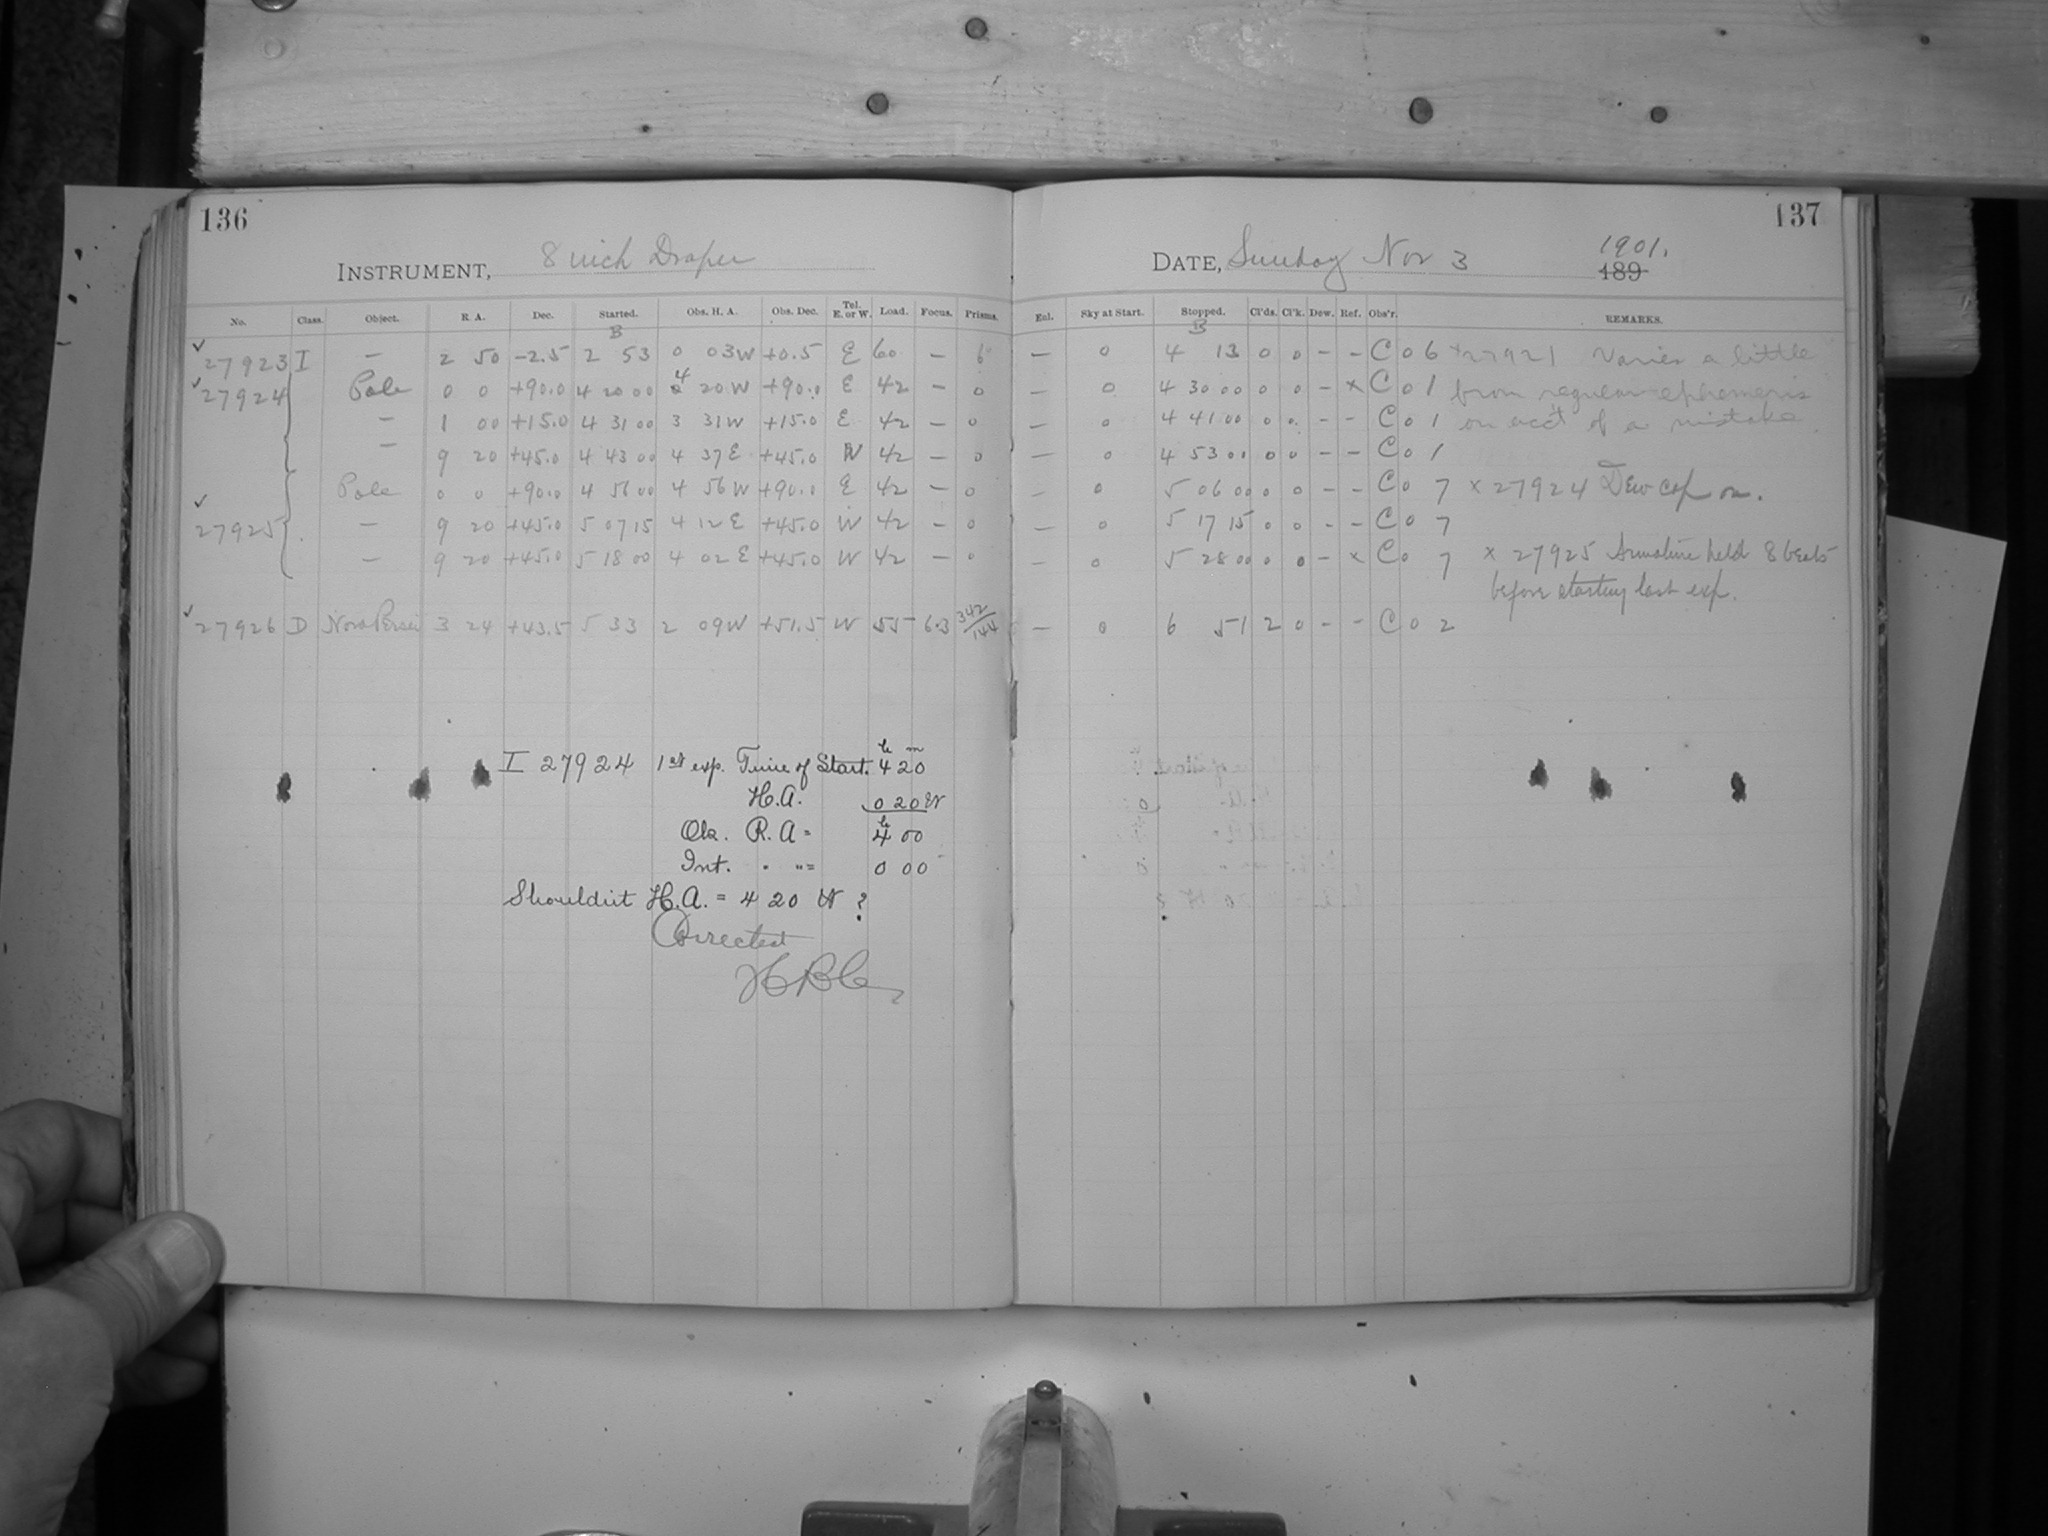 136
137
INSTRUMENT, 8 inch Draper
DATE, Sunday Nov 3 1901. 189
No. Class. Object. R. A. Dec. Started. Obs. H. A. Obs. Dec. Tel. E. or W. Load. Focus. Prisms. Enl. Sky at Start. Stopped. Cl'ds. Cl'k. Dew. Ref. Obs'r. REMARKS.
B B
✓ 27923 I — 2 50 -2.5 2 53 0 03W +0.5 E 60 — 6 — 0 4 13 0 0 - - C 0 6 x27921 Varies a little
✓ 27924 Pole 0 0 +90.0 4 20 00 4 20W +90.0 E 42 — 0 — 0 4 30 00 0 0 - x C 0 1 from regular ephemeris
— 1 00 +15.0 4 31 00 3 31W +15.0 E 42 — 0 — 0 4 41 00 0 0 - - C 0 1 on acc't of a mistake.
— 9 20 +45.0 4 43 00 4 37E +45.0 W 42 — 0 — 0 4 53 00 0 0 - - C 0 1
Pole 0 0 +90.0 4 56 00 4 56W +90.0 E 42 — 0 — 0 5 06 00 0 0 - - C 0 7 x 27924 Dew cap on.
✓ 27925 — 9 20 +45.0 5 07 15 4 12 E +45.0 W 42 — 0 — 0 5 17 15 0 0 - - C 0 7
— 9 20 +45.0 5 18 00 4 02 E +45.0 W 42 — 0 — 0 5 28 00 0 0 - x C 0 7 x 27925 held 8 beats
before starting last exp.
✓ 27926 D Nova Persei 3 24 +43.5 5 33 2 09W +51.5 W 55 6.3 342/144 — 0 6 51 2 0 - - C 0 2
h m
I 27924 1st exp. Time of Start. 4 20
H.A. 0 20 W
Obs. R.A = 4h 00
Int. " " = 0 00
Shouldn't H.A. = 4 20 W ?
Corrected